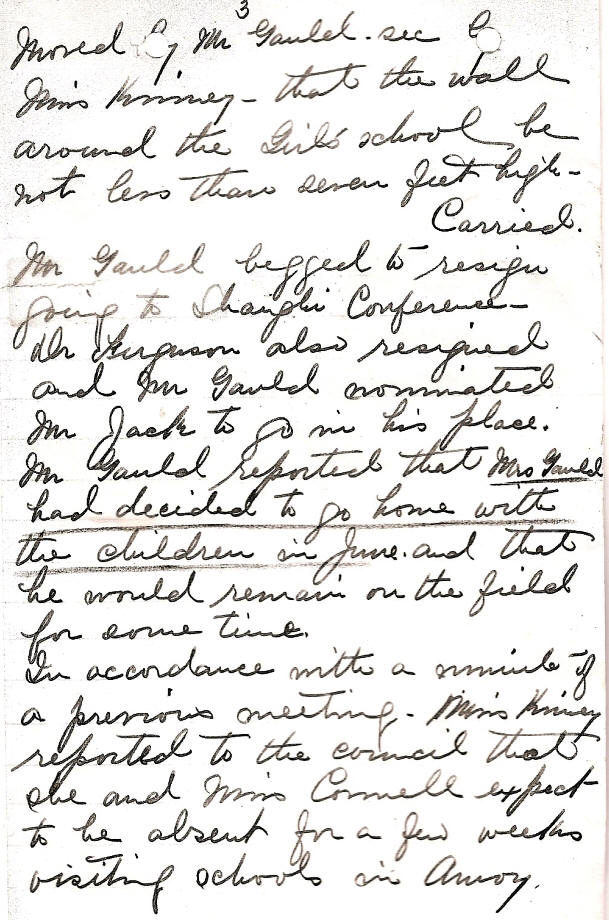 3
Moved by Mr Gauld. sec by
Miss Kinney - that the wall
around the Girls' school be
not less than seven feet high -
Carried.
Mr Gauld begged to resign
going to Shanghi Conference -
Dr Ferguson also resigned
and Mr Gauld nominated
Mr Jack to go in his place.
Mr Gauld reported that Mrs Gauld
had decided to go home with
the children in June. and that
he would remain on the field
for some time.
In accordance with a minute of
a previous meeting - Miss Kinney
reported to the council that
she and Miss Connell expect
to be absent for a few weeks
visiting schools in Amoy.